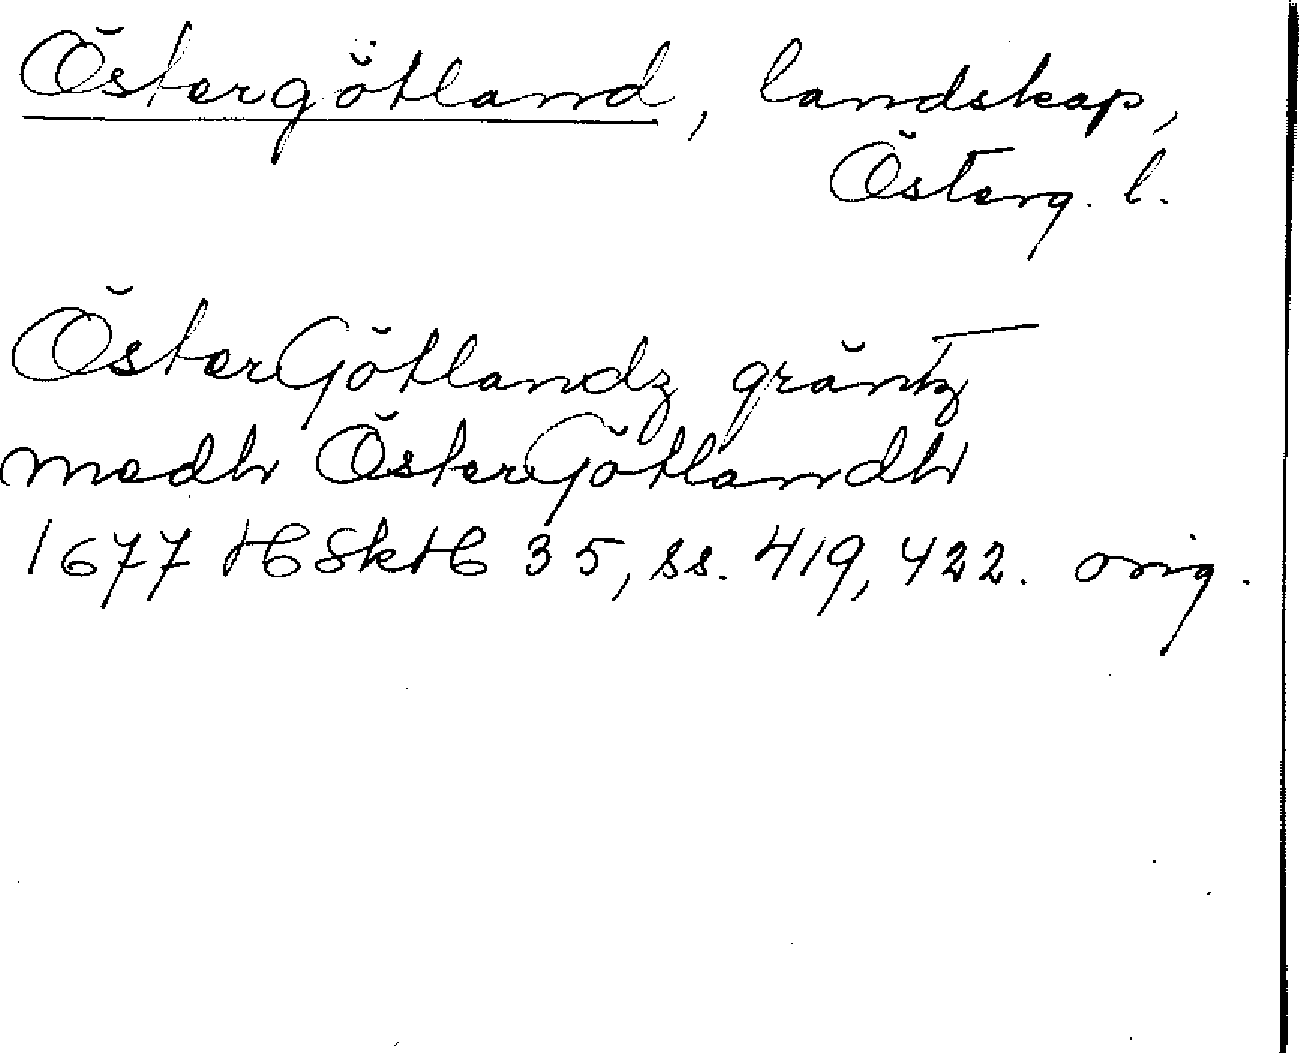 Östergötland, landskap,
Österg. l.
ÖsterGötlandz gräntz
medh ÖsterGötlandh
1677 HSkH 35, ss. 419, 422. orig.